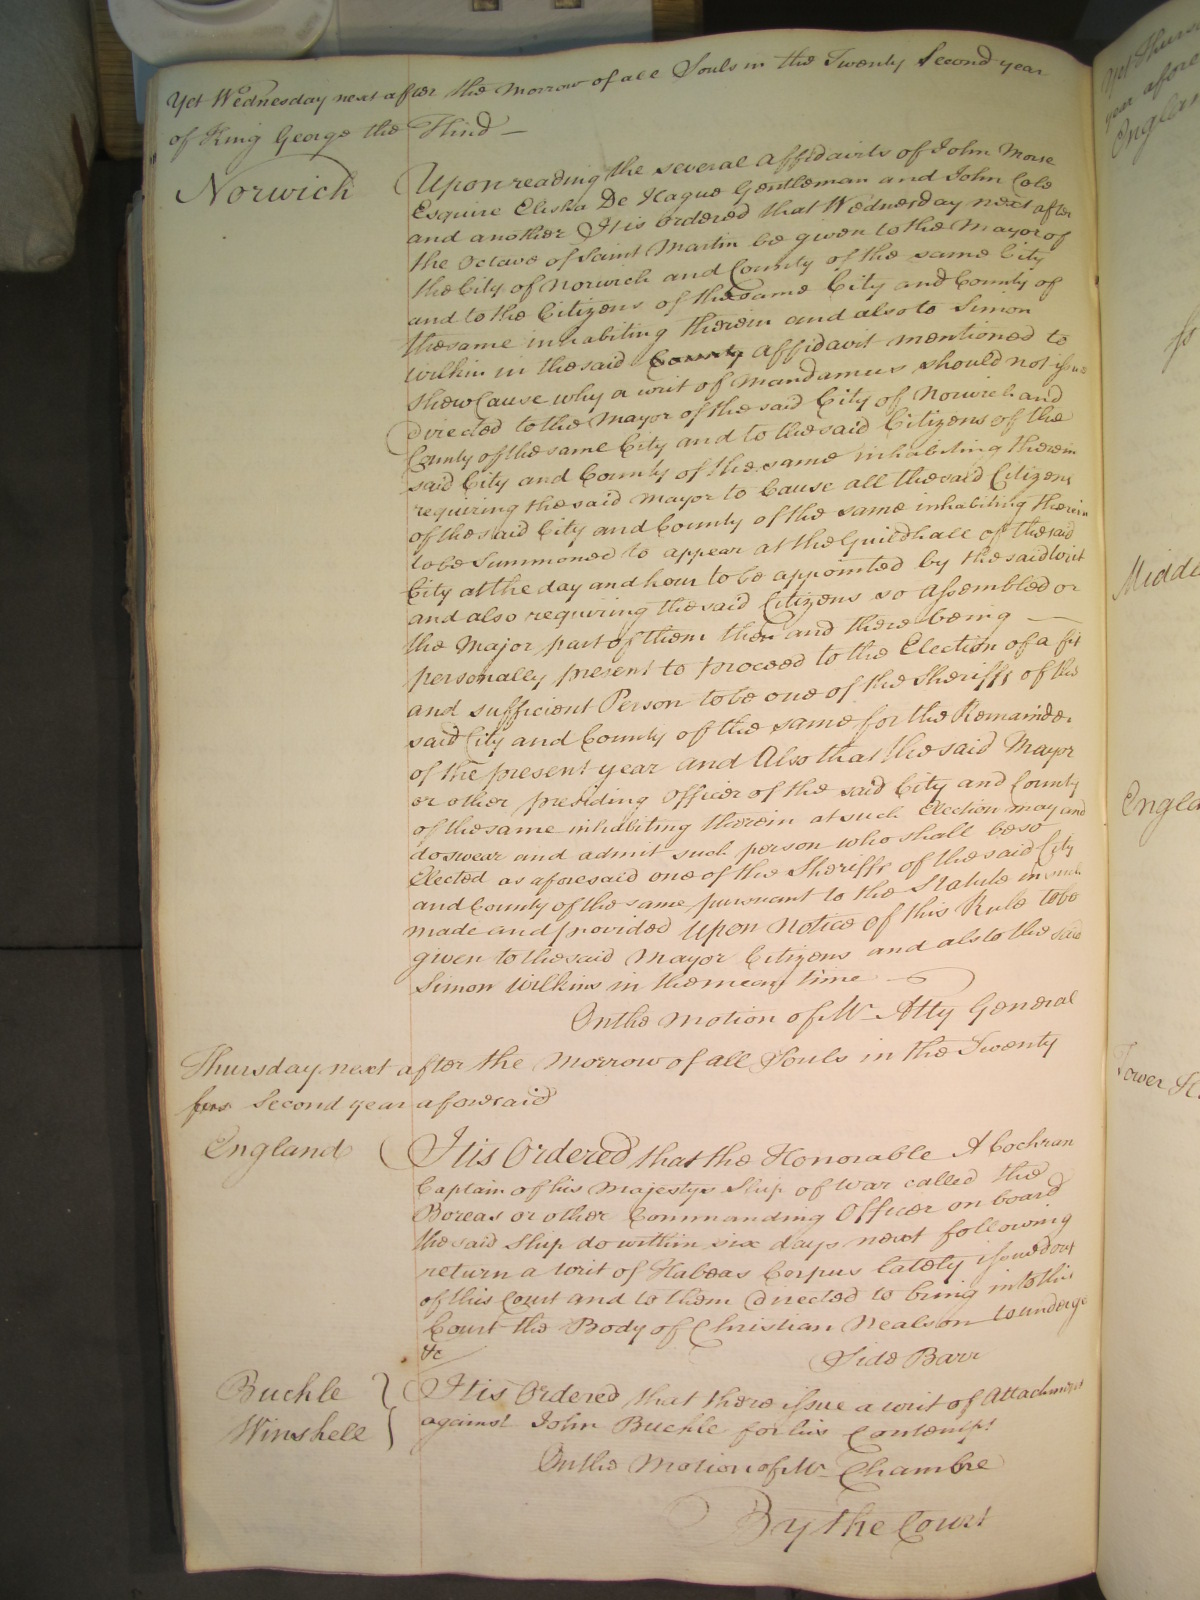 Yet Wednesday next after the Morrow of all Souls in the Twenty Second year
of King George the Third
Norwich
Upon reading the several Affidavits of John Morse
Esquire Elisha De Hague Gentleman and John Cole
and another It is Ordered that Wednesday next after
the Octave of Saint Martin be given to the Mayor of
the City of Norwich and County of the same City
and to the Citizens of the same City and County of
the same inhabiting therein and also to Simon
Wilkin in the said County Affidavit mentioned to
shew Cause why a writ of Mandamus should not issue
Directed to the Mayor of the said City of Norwich and
County of the same City and to the said Citizens of the
said City and County of the same inhabiting therein
requiring the said Mayor to Cause all the said Citizens
of the said City and County of the same inhabiting therein
to be Summoned to appear at the Guildhall of the said
City at the day and hour to be appointed by the said writ
and also requiring the said Citizens so Assembled or
the Major part of them then and there being
personally present to proceed to the Election of a fit
and sufficient Person to be one of the Sheriffs of the
said City and County of the same for the Remainder
of the present year and Also that the said Mayor
or other presiding Officer of the said City and County
of the same inhabiting therein at such Election may and
do swear and admit such person who shall be so
Elected as aforesaid one of the Sheriffs of the said City
and County of the same pursuant to the Statute in such
made and provided Upon Notice of this Rule to be
given to the said Mayor Citizens and also to the said
Simon Wilkins in the mean time
On the Motion of Mr Atty General
Thursday next after the Morrow of all Souls in the Twenty
Second year aforesaid
England
It is Ordered that the Honorable A Cochran
Captain of his Majestys Ship of War called the
Boreas or other Commanding Officer on board
the said Ship do within six days next following
return a writ of Habeas Corpus lately issued out
of this Court and to them Directed to bring into this
Court the Body of Christian Nealson to undergo
&c
Side Barr
Buckle
Winshell
It is Ordered that there issue a writ of Attachment
against John Buckle for his Contempt
On the Motion of Mr Chambre
By the Court
England
ss
Middl
Engla
Tower